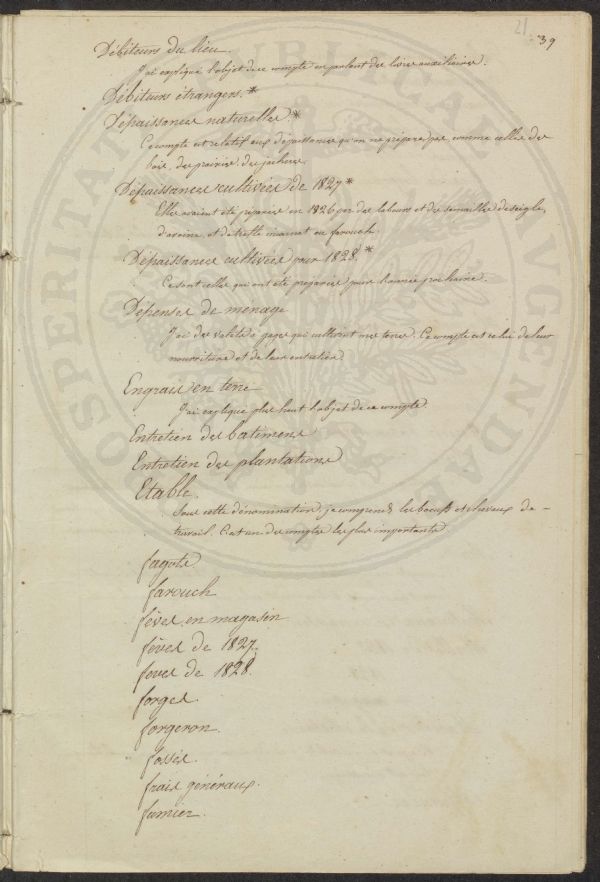 21
39
Débiteurs du lieu.
J'ai expliqué l'objet de ce compte en parlant des livres auxiliaires.
Débiteurs étrangers.*
Dépaissances naturelles.*
Ce compte est relatif aux dépaissances qu'on ne prépare pas comme celles des
bois, des prairies, des jachères.
Dépaissances cultivées de 1827*
Elles avaient été préparées en 1826 par des labours et des semailles de seigle,
d'avoine, et de trefle incarnat ou farouch.
Dépaissances cultivées pour 1828.*
Ce sont celles qui ont été préparées pour l'année prochaine.
Dépenses de ménage
J'ai des valets à gages qui cultivent mes terres. Ce compte est celui de leur
nourriture et de leur entretien.
Engrais en terre
J'ai expliqué plus haut l'objet de ce compte.
Entretien des batimens
Entretien des plantations
Etable.
Sous cette dénomination, je comprends les boeufs et chevaux de
travail. C'est un des comptes les plus importants
fagots
farouch
fèves en magasin
fèves de 1827.
feves de 1828.
forges.
forgeron.
fossés.
frais généraux.
fumier.
PROSPERITATI PUBLICAE AUGENDAE